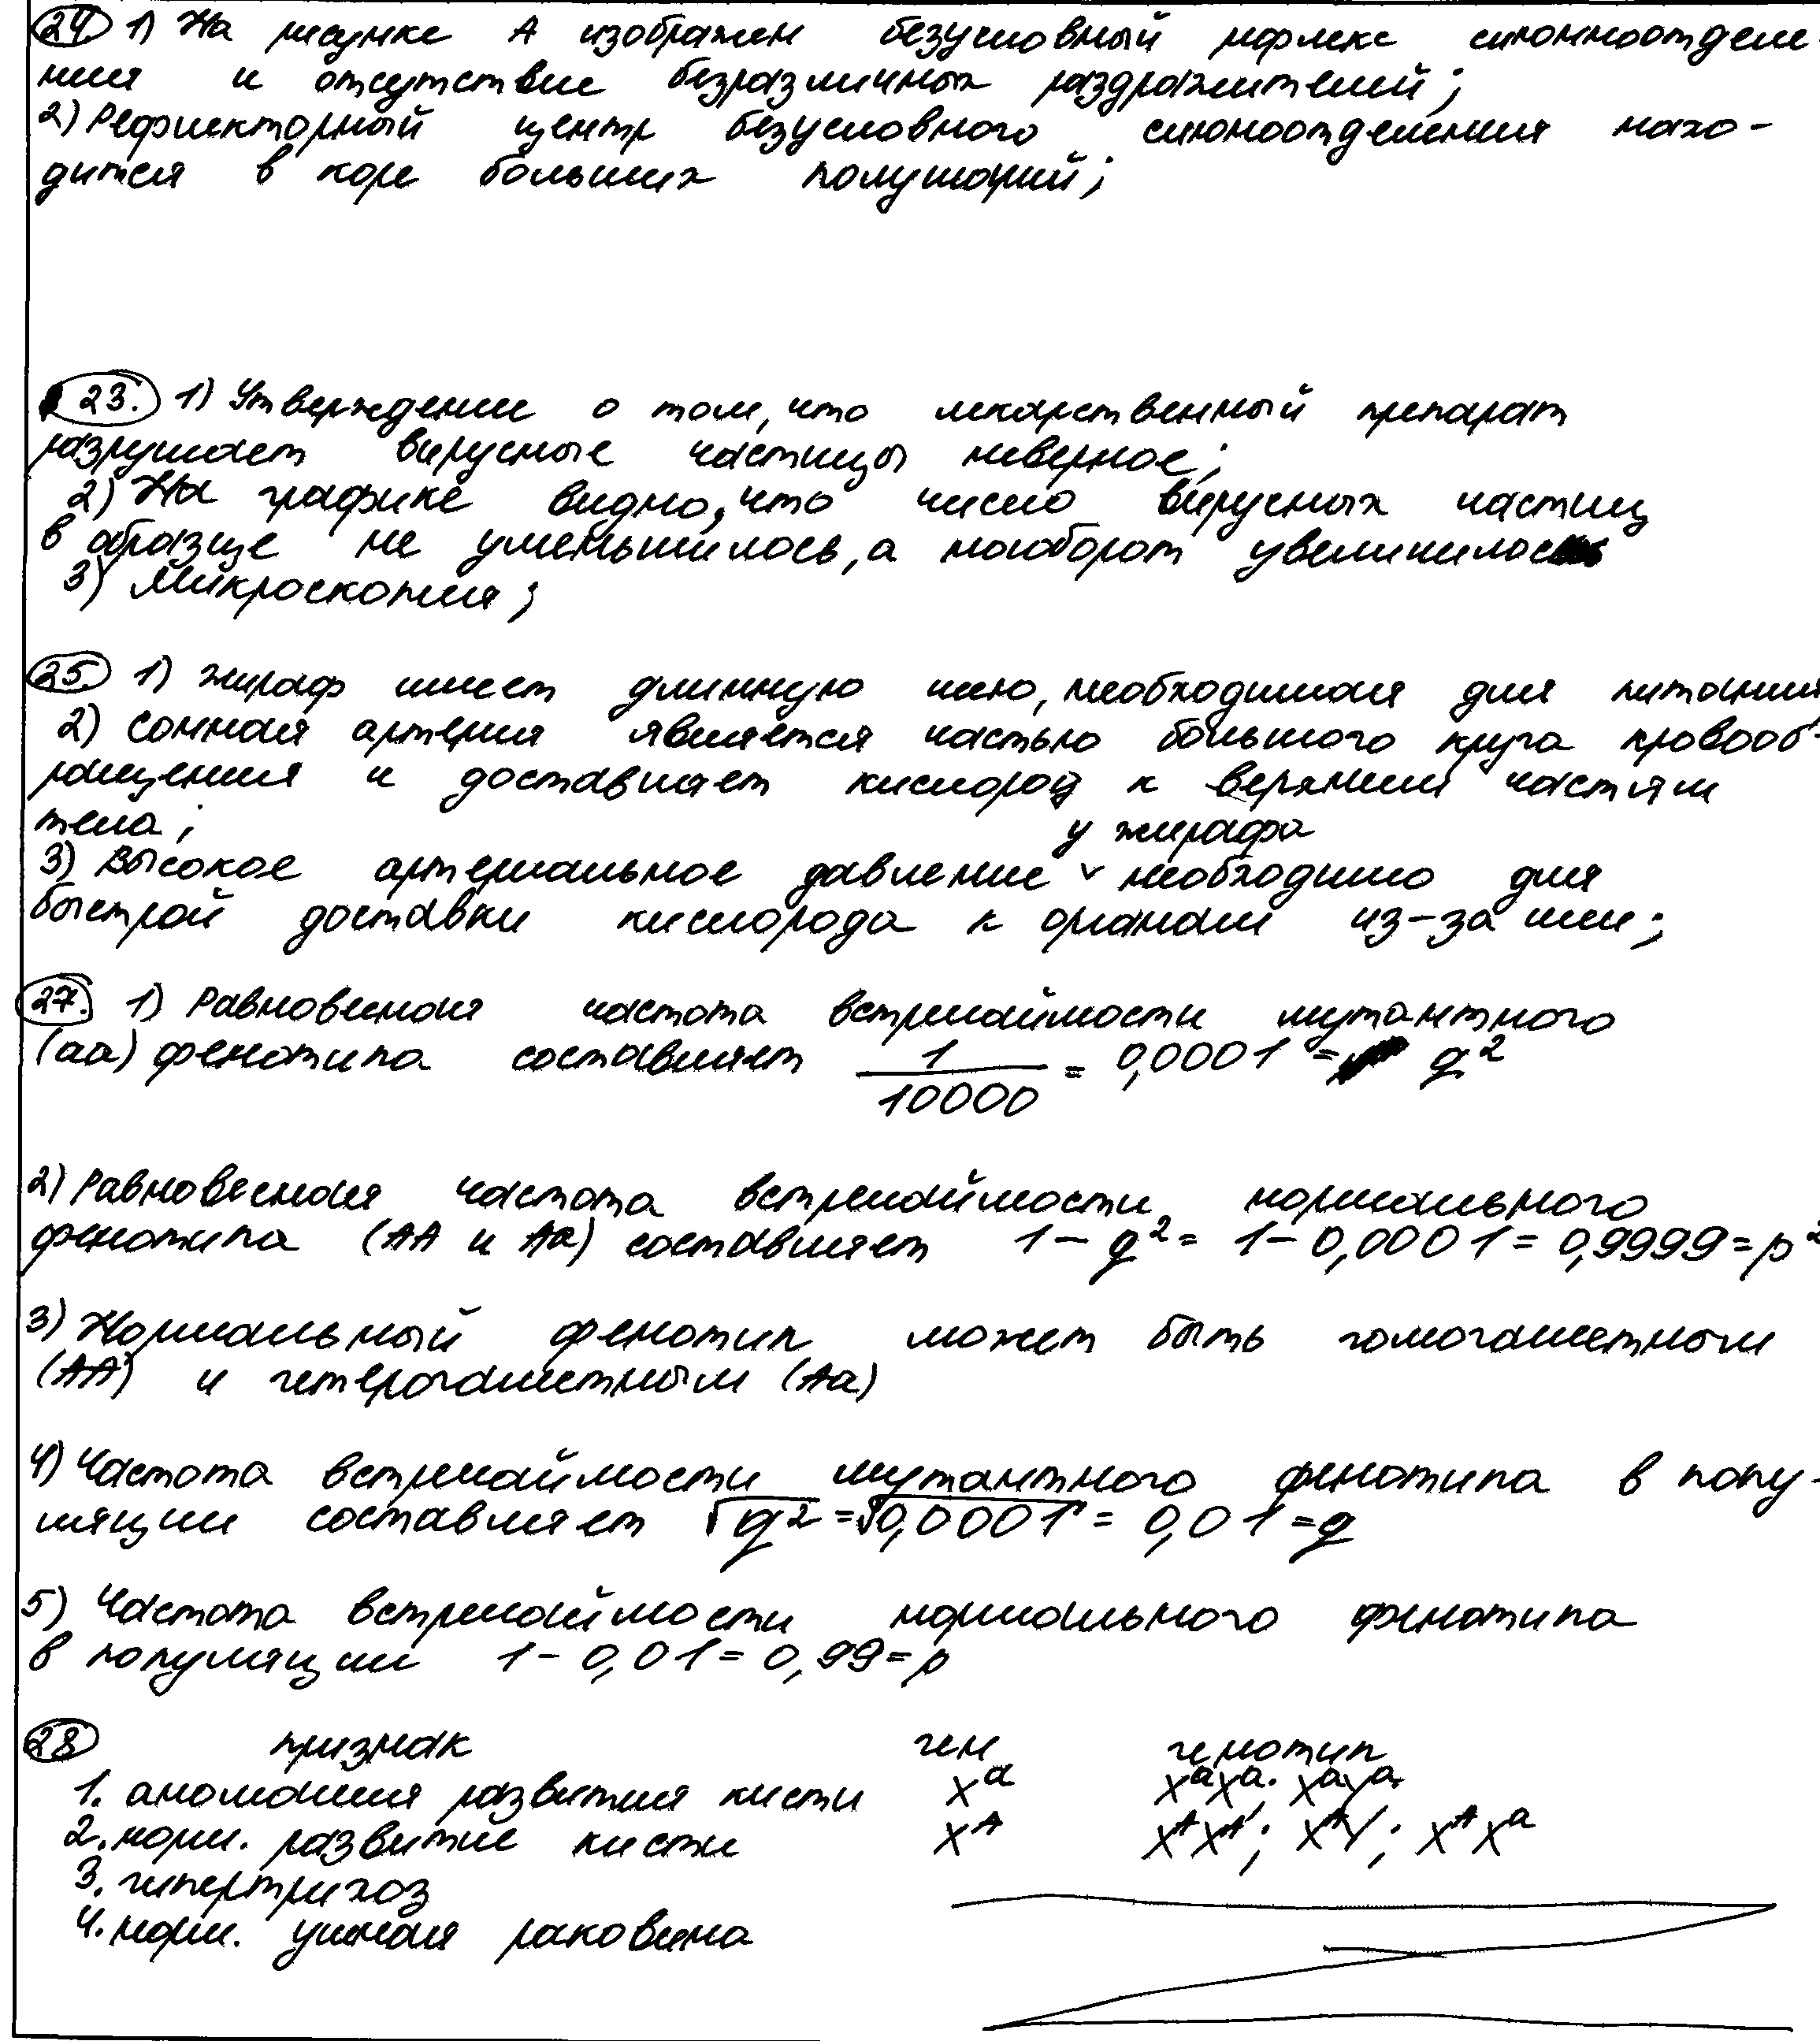 24 1) На рисунке А изображен безусловный рефлекс слюнноотделе-
ния и отсутствие безразличных раздражителей;
2) Рефлекторный центр безусловного слюноотделения нахо-
дится в коре больших полушарий;
23. 1) Утверждение о том, что лекарственный препарат
разрушает вирусные частицы неверное;
2) На графике видно, что число вирусных частиц
в образце не уменьшилось, а наоборот увеличилось
3) Микроскопия;
25. 1) Жираф имеет длинную шею, необходимая для питания
2) Сонная артерия является частью большого круга кровооб-
ращения и доставляет кислород к верхним частям
тела;
у жирафа
3) Высокое артериальное давление ˅ необходимо для
быстрой доставки кислорода к органам из-за шеи;
27. 1) Равновесная частота встречаймости мутантного
(аа) фенотипа составляет 1/10000 = 0,0001 = q²
2) Равновесная частота встречаймости нормального
фенотипа (АА и Аа) составляет 1 - q² = 1 - 0,0001 = 0,9999 = p²
3) Нормальный фенотип может быть гомогаметным
(АА) и гетерогаметным (Аа)
4) Частота встречаймости мутантного фенотипа в попу-
ляции составляет √q² = √0,0001 = 0,01 = q
5) Частота встречаймости нормального фенотипа
в популяции 1 - 0,01 = 0,99 = p
28 признак ген генотип
1. аномалия развития кисти Xᵃ XᵃXᵃ; XᵃYᵃ
2. норм. развитие кисти Xᴬ XᴬXᴬ; XᴬY; XᴬXᵃ
3. гипертрихоз
4. норм. ушная раковина